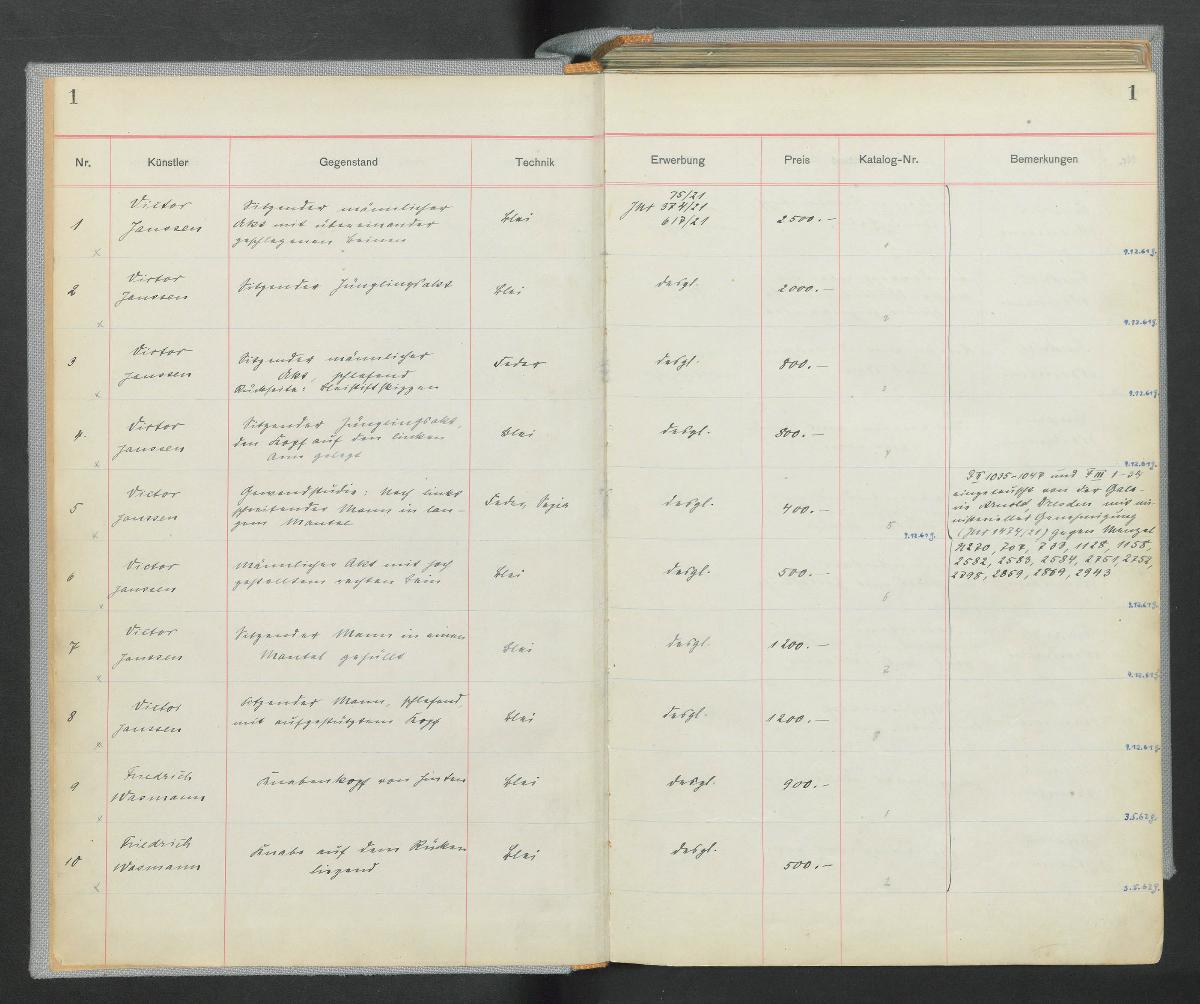 1
1
Nr. Künstler Gegenstand Technik Erwerbung Preis Katalog-Nr. Bemerkungen
1 Victor Janssen
Sitzender männlicher
Akt mit übereinander
geschlagenen Beinen
Blei
75/21
JNr 374/21
617/21
2500.—
1
9.12.61 g.
2 Victor Janssen
Sitzender Jünglingsakt
Blei
desgl.
2000.—
2
9.12.61 g.
3 Victor Janssen
Sitzender männlicher
Akt, schlafend
Rückseite: Bleistiftskizzen
Feder
desgl.
800.—
3
9.12.61 g.
4. Victor Janssen
Sitzender Jünglingsakt,
den Kopf auf den linken
Arm gelegt
Blei
desgl.
800.—
4
9.12.61 g.
5 Victor Janssen
Gewandstudie: Nach links
schreitender Mann in lan-
gem Mantel
Feder, Sepia
desgl.
400.—
5
9.12.61 g.
1035-1047 und F III 1-34
eingetauscht von der Gale-
rie Arnold, Dresden mit mi-
nisterieller Genehmigung
(JNr 1474/21) gegen Menzel
N 270, 707, 733, 1128, 1158,
2582, 2583, 2584, 2751, 2752,
2795, 2859, 2869, 2943
6 Victor Janssen
Männlicher Akt mit hoch
gestelltem rechten Bein
Blei
desgl.
500.—
6
9.12.61 g.
7 Victor Janssen
Sitzender Mann in einen
Mantel gehüllt
Blei
desgl.
1200.—
9.12.61 g.
8 Victor Janssen
Sitzender Mann, schlafend,
mit aufgestütztem Kopf
Blei
desgl.
1200.—
8
9.12.61 g.
9 Friedrich Wasmann
Knabenkopf von hinten
Blei
desgl.
900.—
1
3.5.62 g.
10 Friedrich Wasmann
Knabe auf dem Rücken
liegend
Blei
desgl.
500.—
2
3.5.62 g.